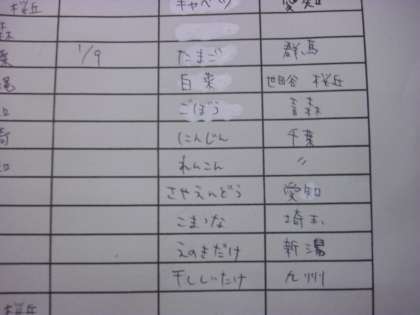 桜丘 キャベツ 愛知
森
葉 1/9 たまご 群馬
潟 白菜 世田谷 桜丘
ごぼう 青森
崎 にんじん 千葉
知 れんこん 〃
さやえんどう 愛知
こまつな 埼玉
えのきだけ 新潟
干ししいたけ 九州
桜丘